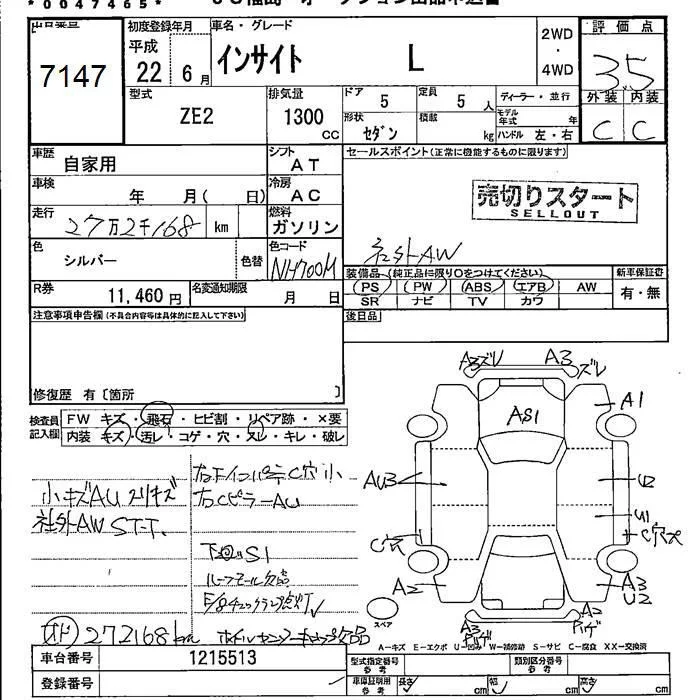 *0047465*
出品番号
7147
初度登録年月
平成
22年 6月
車名・グレード
インサイト L
2WD
・
4WD
評価点
3.5
型式
ZE2
排気量
1300
CC
ドア
5
定員
5 人
ディーラー・並行
モデル年式 年
外装 内装
C C
形状
セダン
積載
kg
ハンドル 左・右
車歴
自家用
シフト
AT
セールスポイント(正常に機能するものに限ります)
車検
年 月( 日)
冷房
AC
売切りスタート
SELLOUT
走行
27万2千168 km
燃料
ガソリン
社外AW
色
シルバー
色替
色コード
NH700M
装備品(純正品に限り○をつけてください)
新車保証書
PS PW ABS エアB AW
有・無
SR ナビ TV カワ
R券
11,460円
名変通知期限
月 日
注意事項申告欄(不具合内容等は具体的に記入して下さい)
後日品
修復歴 有〔箇所 〕
検査員記入欄
FW キズ・飛石・ヒビ割・リペア跡・×要
内装 キズ・汚レ・コゲ・穴・スレ・キレ・破レ
小キズAU スリキズ
社外AW
右Cピラー AU
下回S1
ルーフモール欠品
オド 272168km
A3ズレ
A3
ズレ
AS1
A1
AU3
U2
U1
C穴
C穴大
A2
A3
U2
スペア
A3
A2
A-キズ E-エクボ U-凹み W-補修跡 S-サビ C-腐食 XX-交換済
車台番号
1215513
型式指定番号 参考
類別区分番号 参考
登録番号
車庫証明用 参考
長さ cm
幅 cm
高さ cm